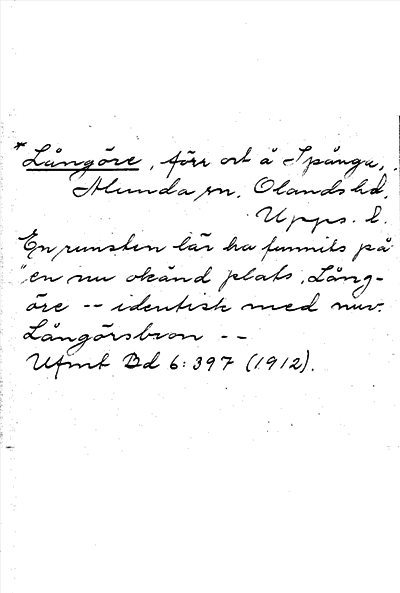 *Långöre, förr ort å Spånga,
Alunda sn. Olands hd.
Upps. l.
En runsten lär ha funnits på
"en nu okänd plats, Lång-
öre -- identisk med nuv.
Långörsbron --
Ufmt Bd 6:397 (1912).